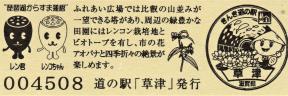 "琵琶湖からす蓮根"
レン君 レンコちゃん
ふれあい広場では比叡の山並みが
一望できる塔があり、周辺の緑豊かな
田園にはレンコン栽培地と
ビオトープを有し、市の花
アオバナと四季折々の絶景が
楽しめます。
きんき道の駅
草津
滋賀県
004508 道の駅「草津」発行